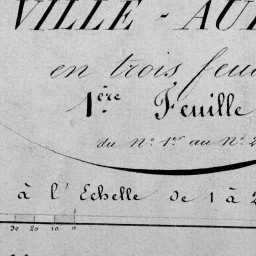 VILLE - AU
en trois feu
1ère Feuille
du N° 1er au N° 2
à l'Echelle de 1 à 2
30 20 10 0